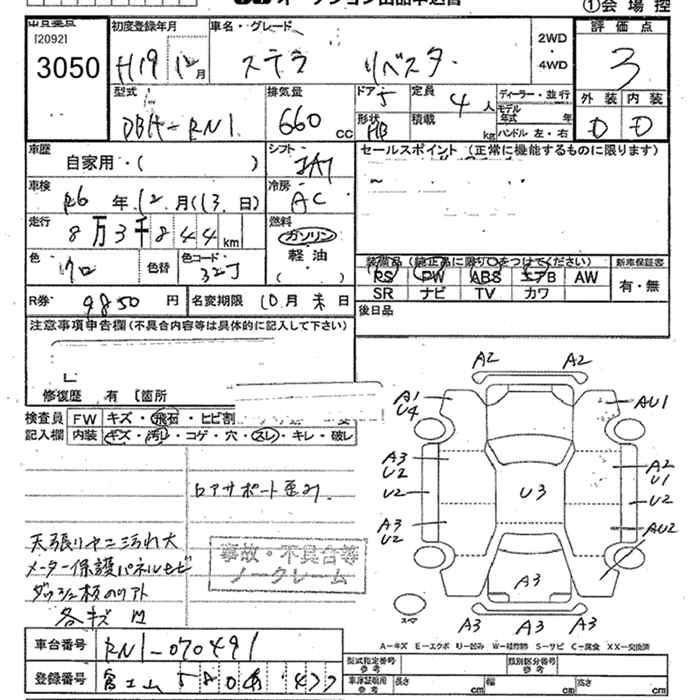 オークション出品申込書
①会場控
[2092]
3050
初度登録年月
H19 12月
車名・グレード
ステラ リベスタ
2WD
・
4WD
評価点
3
型式
DBA-RN1
排気量
660 cc
ドア
5
定員
4人
形状
HB
積載
kg
ディーラー・並行
モデル年式 年
ハンドル 左・右
外装 内装
D D
車歴
自家用・( )
シフト
セールスポイント (正常に機能するものに限ります)
車検
R6年12月(13日)
冷房
AC
走行
8万3千844km
燃料
ガソリン
軽油
( )
色
クロ
色替
色コード
32J
装備品 (純正品に限り○をつけてください)
PS PW ABS エアB AW
SR ナビ TV カワ
新車保証書
有・無
R券
9850円
名変期限
10月末日
後日品
注意事項申告欄(不具合内容等は具体的に記入して下さい)
修復歴 有 [箇所
検査員記入欄
FW キズ・飛石・ヒビ割
内装 キズ・汚レ・コゲ・穴・スレ・キレ・破レ
ロアサポート歪み.
天張りヤニ汚れ大
メーター保護パネルキビ
各キズ 凹
事故・不具合等
ノークレーム
A2 A2
A1
U4
AU1
A3
U2
A2
U1
U2
U3
U2
A3
U2
AU2
A3
A3
A3 A3 A3
スペア
A-キズ E-エクボ U-凹み W-補修跡 S-サビ C-腐食 XX-交換済
車台番号
RN1-070491
登録番号
富士山 580 あ 477
型式指定番号
参考
類別区分番号
参考
車庫証明用
参考
長さ cm
幅 cm
高さ cm